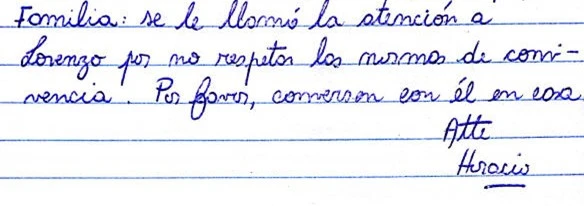 Familia: se le llamó la atención a
Lorenzo por no respetar las normas de convi-
vencia. Por favor, conversen con él en casa
Atte
Horacio